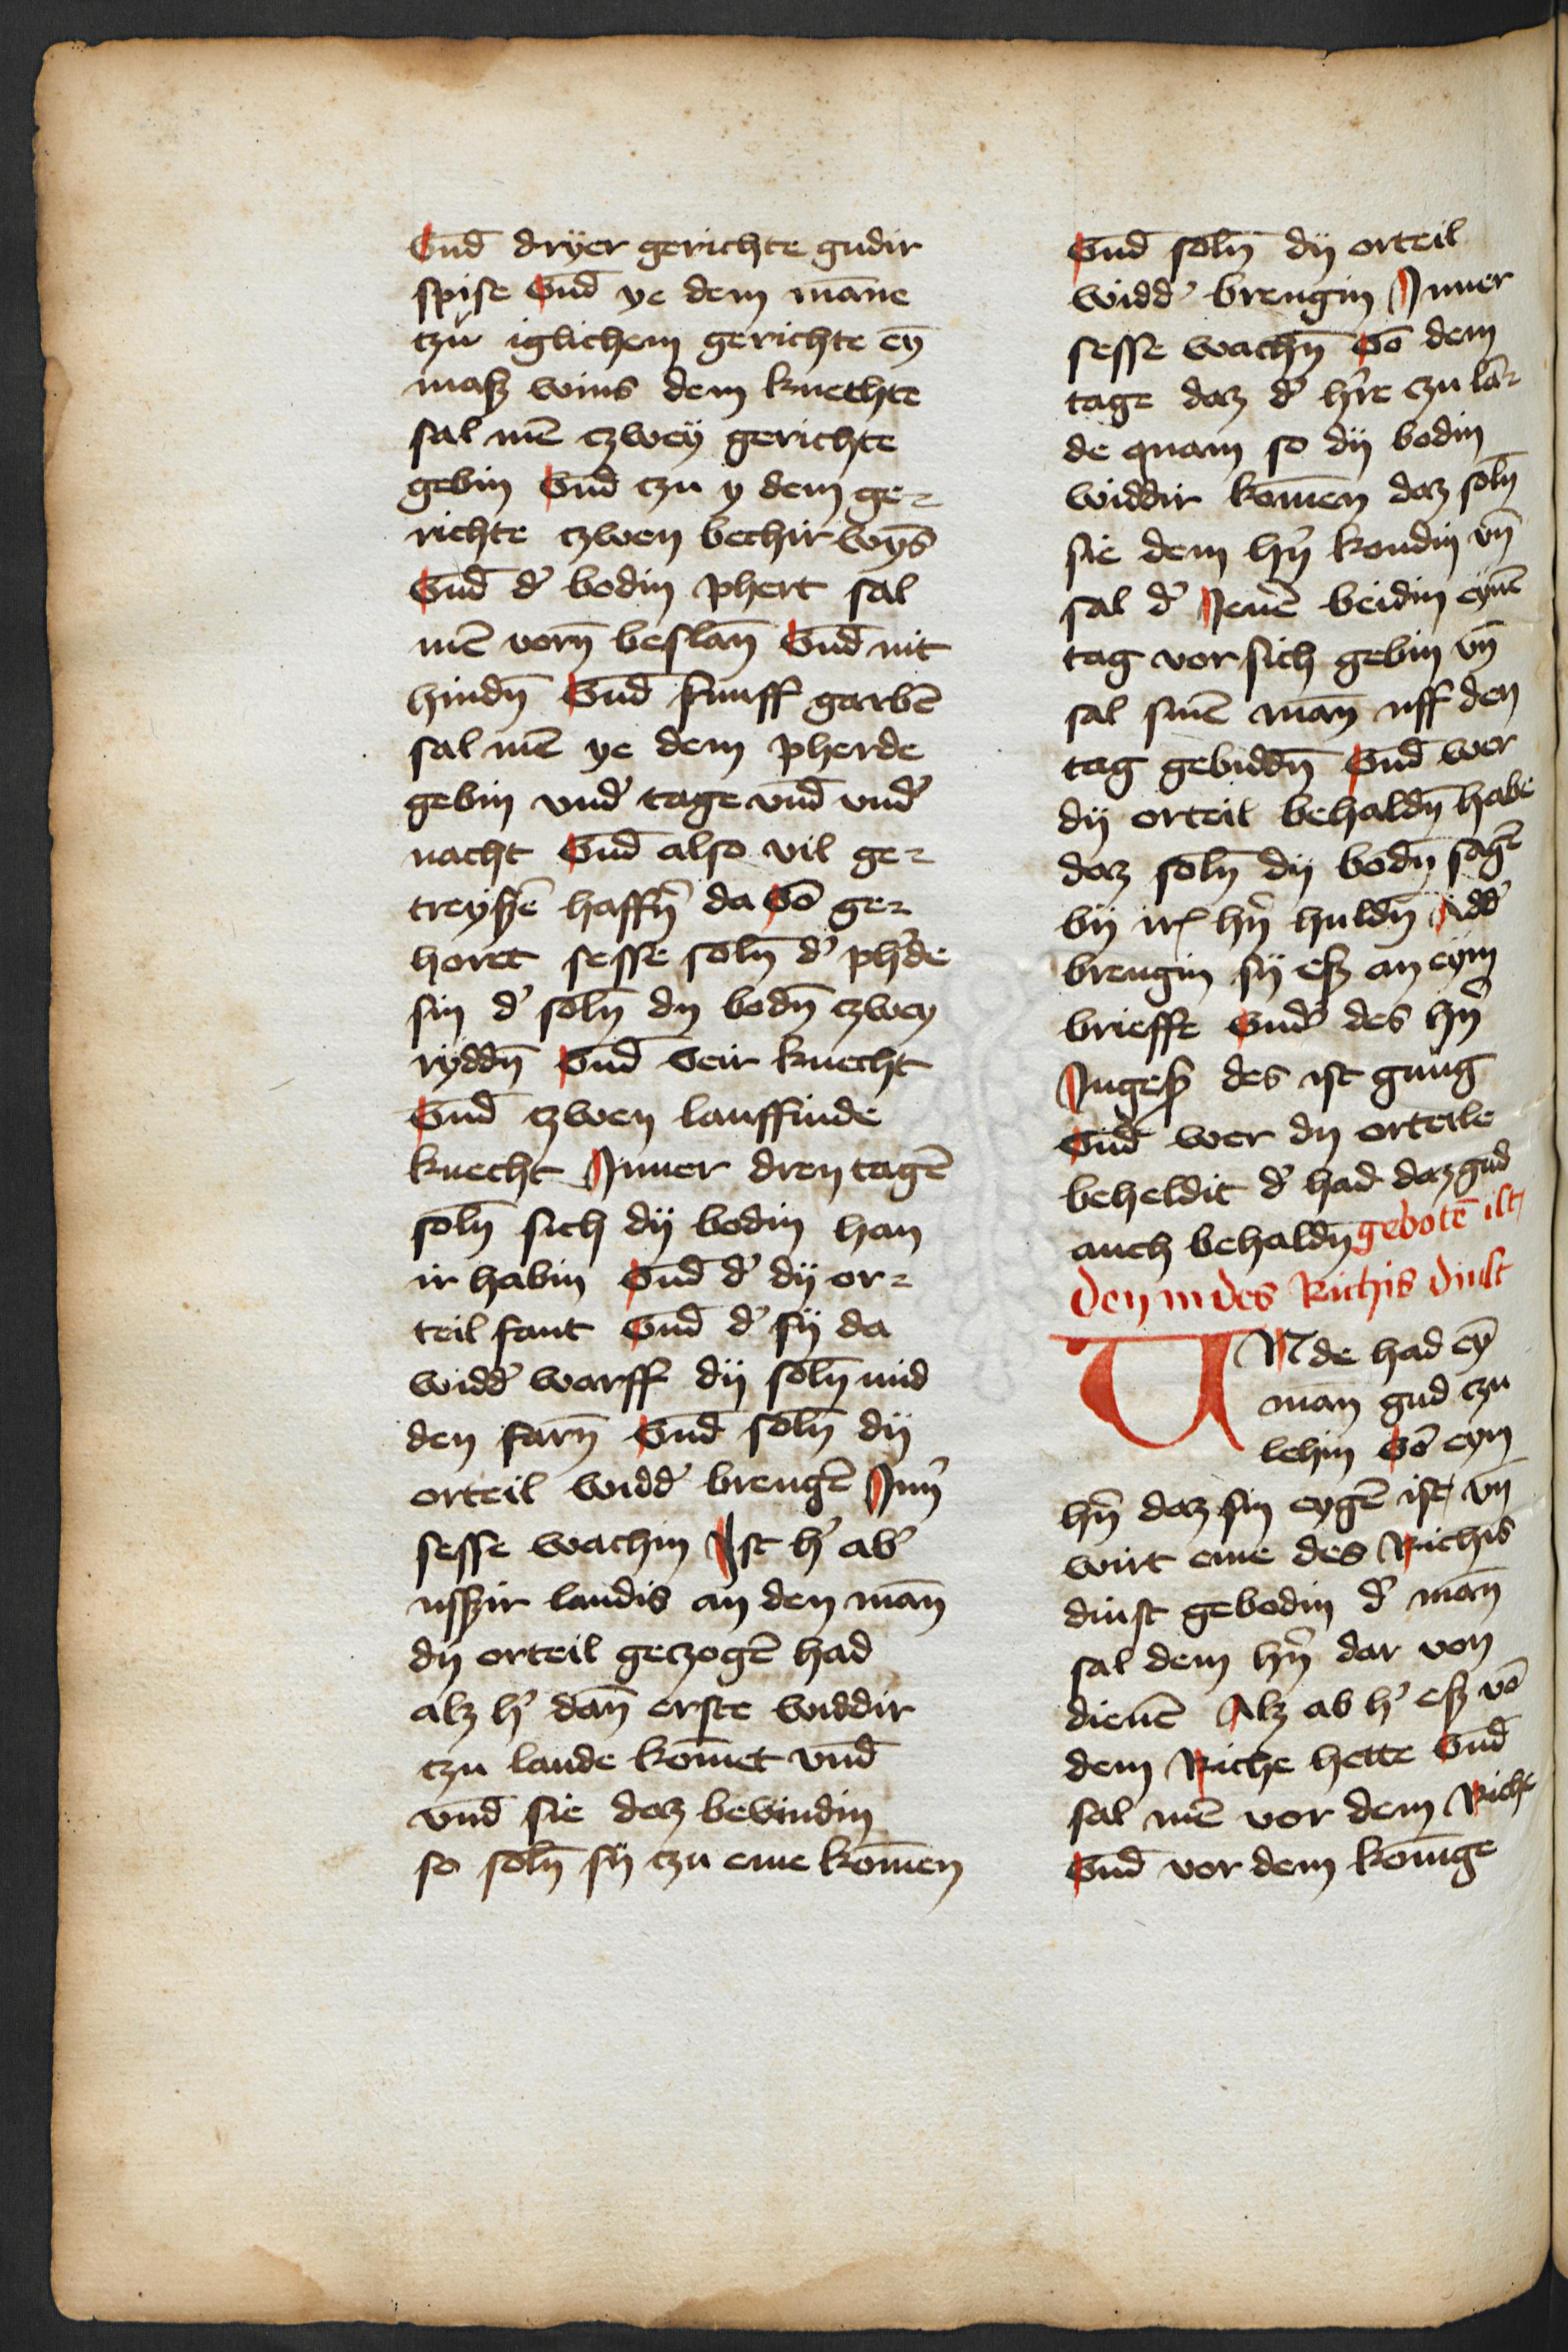 Vnd̄ dryer gerichte gudir
spise Vnd̄ ye dem māne
tzu iglichem gerichte eȳ
masz wins dem knechte
sal mē czwey gerichte
gebin Vnd̄ tzu y dem ge-
richte czwen bechir wȳs
Vnd̄ d' bodin phert sal
mē vorn̄ beslan̄ Vnd̄ nit
hindn̄ Vnd̄ funff garbē
sal mē ye dem pherde
gebin vnd' tage vnd̄ vnd'
nacht Vnd̄ also vil ge-
treyszē haffn̄ da Vō ge-
horet sesse soln̄ d' ph'de
sin d' soln̄ dy bodn̄ czwey
ryddn̄ Vnd̄ Veir knecht
Vnd̄ czwen lauffinde
knecht Inner dren tagē
soln̄ sich dij bodin han
ir habin Vnd̄ d' dij or-
teil fant Vnd̄ d' sij da
widd' warff dij soln̄ mid
den farn̄ Vnd̄ soln̄ dij
orteil widd' brengē Inn'
sesse wachin Ist h' ab'
vsszir landis an den man̄
dy orteil geczogē had
alz h' dan̄ erste widdir
tzu lande kōmet vnd̄
vnd̄ sie daz bevindin
so soln̄ sij tzu eme kōmen
Vnd̄ soln̄ dij orteil
widd' brengin Inner
sesse wachn̄ Vō dem
tage daz d' h're czu lā-
de quam so dij bodin
widdir kōmen daz soln̄
sie dem hn̄ kondin vn̄
sal d' Jenē beidin eynē
tag vor sich gebin vn̄
sal sinē man̄ vff den
tag gebiddn̄ Vnd̄ wer
dij orteil behaldn̄ habe
daz soln̄ dij bodn̄ sagē
bij irs hn̄ huldn̄ Add'
brengin sij esz an eym
brieffe Vnd' des hn̄
Ingesz des ist gnug
Vnd̄ wer dy orteile
beheldit d' had daz gud
auch behaldn̄ gebotē ist
Den in des Richis dinst
VNde had eȳ
man̄ gud czu
lehin Vō eym
hn̄ daz sin eygē ist vn̄
wirt eme des Richis
dinst gebodin d' man̄
sal dem hn̄ dar von
dienē Alz ab h' esz vō
dem Riche hette Vnd̄
sal mē vor dem Riche
Vnd̄ vor dem konige